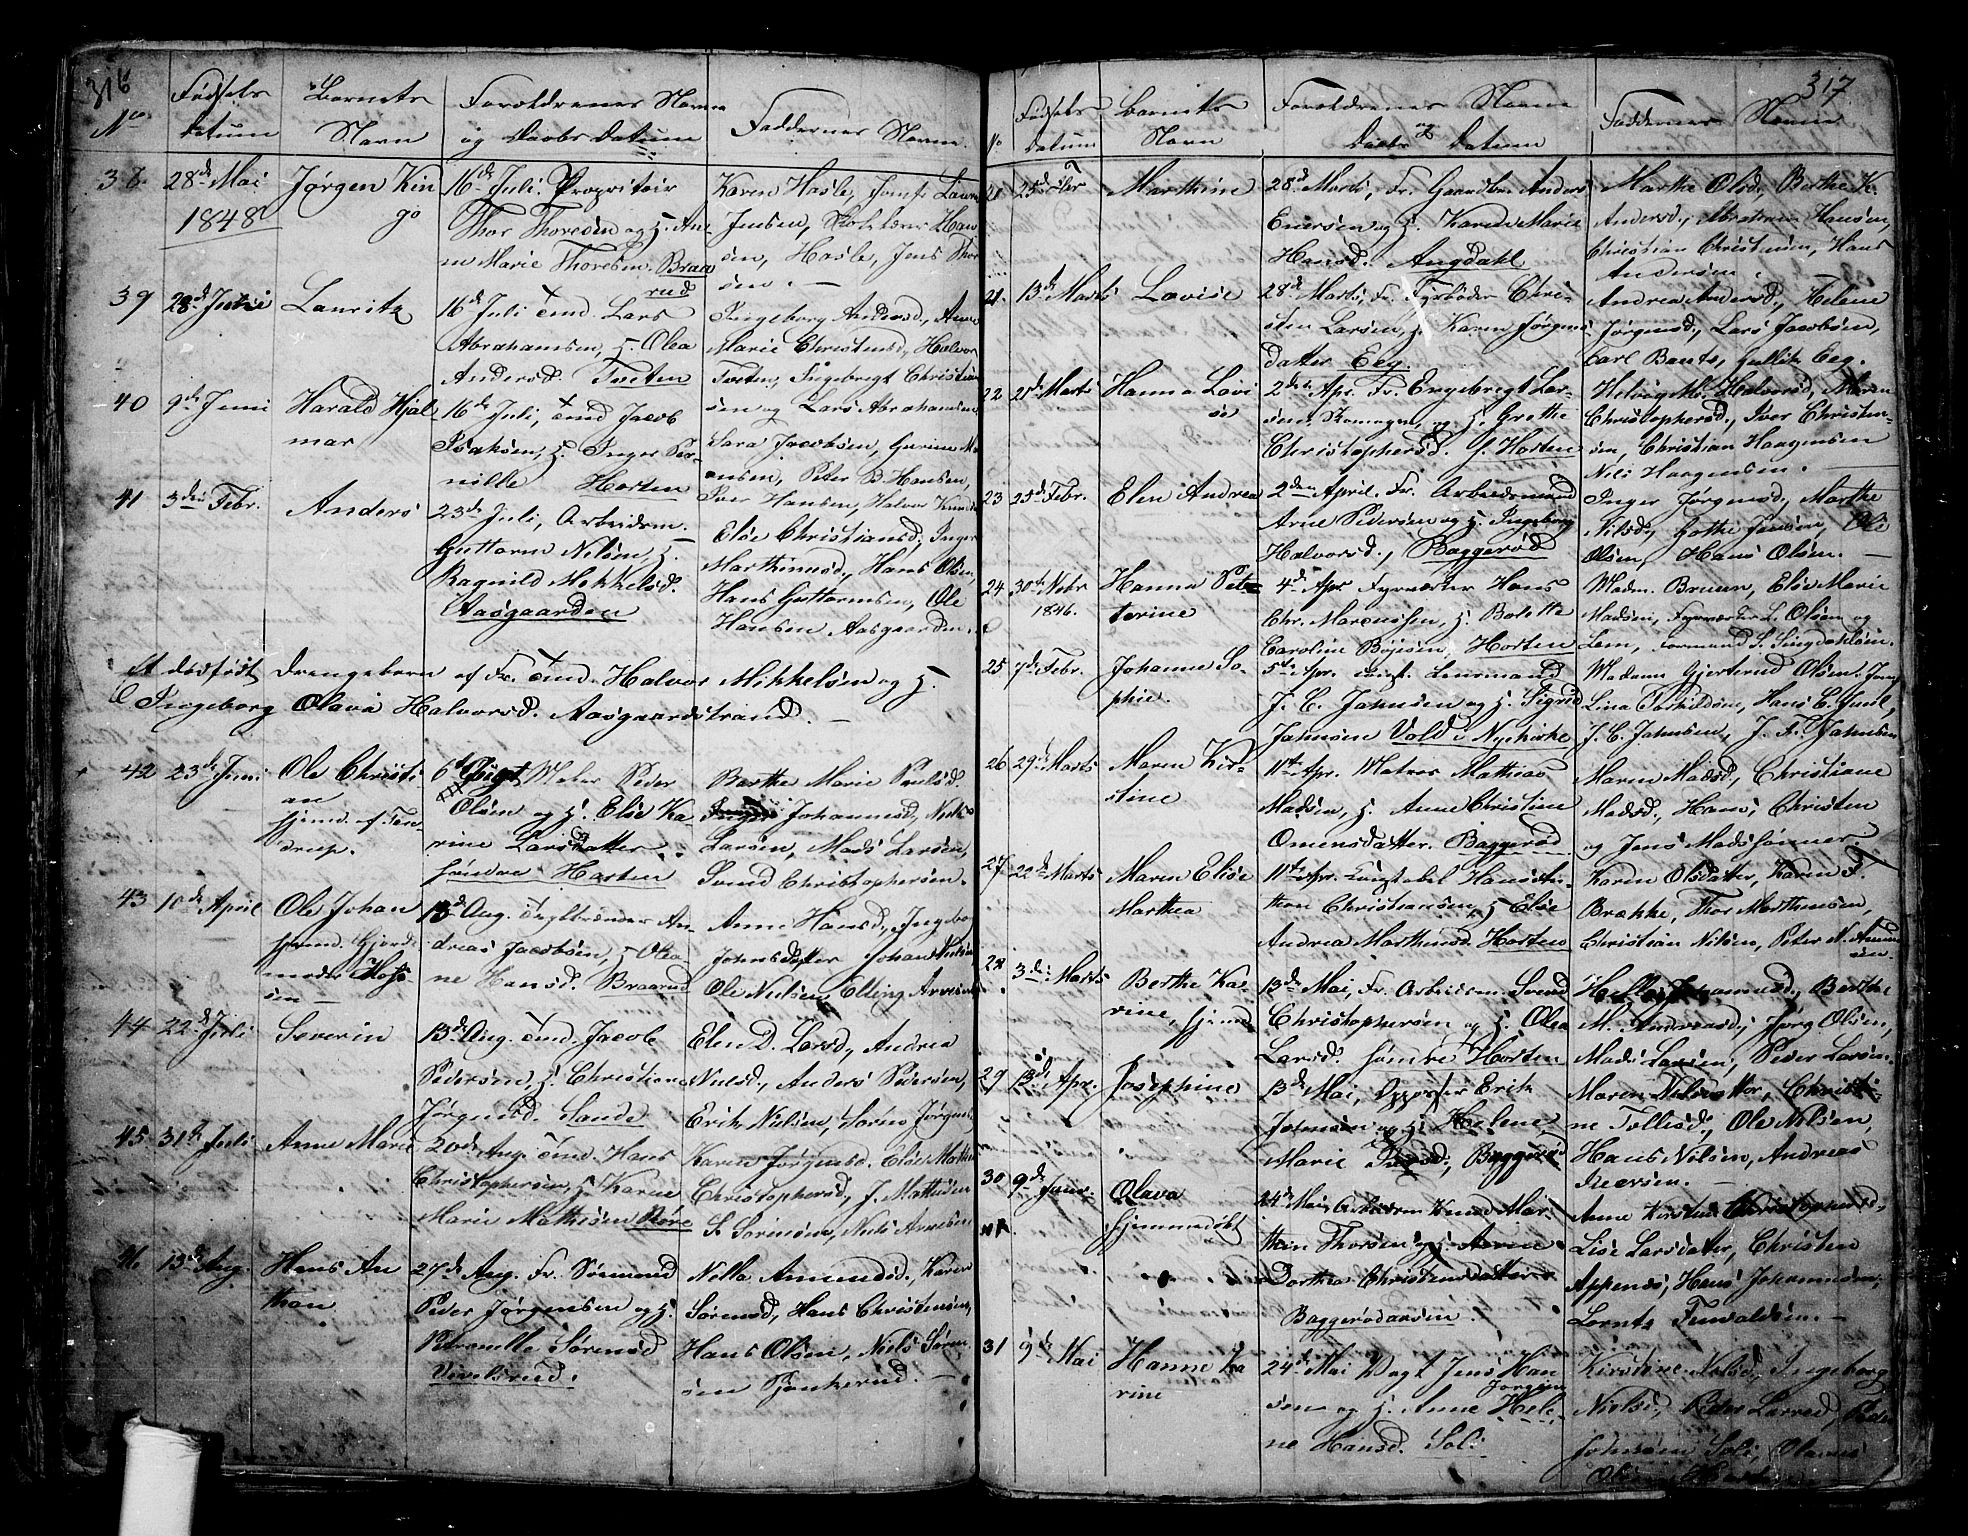 316
No
Fødsels
datum
Barnets
Navn
Forældrenes Navne
og Daabs Datum
Faddernes Navne.
38.
28de Mai
1848
Jørgen Kin
go
16de Juli. Propritair
Thor Thoresen og H. An-
n Marie Thoresen. Braa
rud
Karen Hasle, Jomf. Laur
Jensen, Skolelærer Han
sen, Hasle, Jens Thor
sen. —
39
28de Juni
Lauritz
16de Juli Tmd. Lars
Abrahamsen, H. Olea
Andersd. Tveten
Ingeborg Andersd, Anne
Marie Christensd, Halvor
Tveten, Ingebregt Christian
sen og Lars Abrahamsen
40
9de Juni
Harald Hjal
mar
16de Juli, Tmd Jacob
Isaksen, H. Inger Per-
nille Horten
Sara Jacobsen, Gurine
ansen, Peter B. Hansen,
Iver Hansen, Halvor
41
3die Febr.
Anders
23de Juli, Arbeidsm.
Guttorm Nilsen, H.
Ragnild Mikkelsd.
Aasgaarden
Elise Christiansd, Inger
Marthinusd, Hans Olsen,
Hans Guttormsen, Ole
Hansen Aasgaarden.
Et dødfødt Drengebarn af Fr. Tmd. Halvor Mikkelsen og H.
Ingeborg Olava Halvorsd. Aasgaardstrand. —
42
23de Juni
Ole Christi
an
hjemd. af
6te Maler Peder
Olsen og H. Elise Ka-
rine Larsdatter
søndre Horten
Berthe Marie Paulsd.
Johannesd, Niels
Larsen, Mads Larsen,
Svend Christophersen.
43
10de April
Ole Johan
hjemd. Gjorde
moder
sen —
13de Aug. An-
dreas Jacobsen, H. Olea-
ne Hansd. Braarud
Anne Hansd, Ingebor
Johnsdatter Johan Nielsen
Ole Nielsen, Elling
44
22de Juli
Severin
13de Aug. Tmd. Jacob
Pedersen, H. Christiane
Jørgensd. Sande
Elen D. Larsd, Andrea
Nielsd, Anders Pedersen,
Erik Nielsen, Søren Jørgens
45.
31te Juli
Anne Marie
20de Aug. Tmd. Hans
Christophersen, H. Karen
Marie Mathisen Røre
Karen Jørgensd. Elise
Christophersd, J. Mathisen
S. Sørensen, Niels
46
13de Aug.
Hans An
thon
27de Aug. Fr. Sømand
Peder Jørgensen og H.
Pernille Sørensd
Vivelsrud.
Nella Amundsd., Karen
Sørensd, Hans Christensen,
Hans Olsen, Niels Søren
sen —
317
No
Fødsels
datum
Barnets
Navn
Forældrenes Navne
og
Daabs Datum
Faddernes Navne
Marthine
28de Marts, Fr. Gaardbr. Anders
Enersen og H. Karen Marie
Hansd. Angdahl
Marthe Olsd, Berthe K.
Andersd., Abraham Hansen,
Christian Christensen, Hans
Andersen.
21.
13de Marts
Lovise
28de Marts, Fr. Fyrbøder Chri-
sten Larsen, H. Karen Jørgens
datter Eeg
Andrea Andersd, Helene
Jørgensd, Lars Jacobsen,
Carl Bants, Gullik Eeg.
22
21de Marts
Hanna Lovi
se
2den Apr. Fr. Engebregt Lar-
sen og H. Grethe
Christophersd. G. Horten
Halvorsd, Maren
Christophersd, Iver Christen-
sen, Christian Haagensen
Nils Haagensen.
23
25de Febr.
Elen Andrea
2den April. Fr. Arbeidsmand
Arne Pedersen og H. Ingeborg
Halvorsd., Baggerød
Inger Jørgensd, Marthe
Nilsd, Gothe Jensen, Ole
Olsen, Hans Olsen. —
24
30te Nobr
1846.
Hanna Pet-
terine
4de Apr. Hans
Chr. Marcussen, H. Bolette
Caroline Bøjsen, Horten
Madm. Bruun, Elise Marie
Madsen, L. Olsen og
Lem, Formand S. Singdahlsen.
25
7de Febr.
Johanne So-
phie.
5te Apr. Lensmand
J. C. Jahnsen og H. Sigrid
Jahnsen Vold i Nykirke
Madam Gjertrud Olsen. Jom
Lina Torkildsen, Hans C. Juul,
J. C. Jahnsen, J. F. Jahnsen
26
29de Marts
Maren Kir-
stine
11te Apr. Matros Mathias
Madsen, H. Anne Christine
Omensdatter. Baggerød
Maren Madsd, Christiane
Madsd, Hans Christen
og Jens Madssønner.
27
22de Marts
Maren Elise
Marthea
11te Apr. Hans An-
thon Christiansen, H. Elise
Andrea Marthinsd. Horten
Karen Olsdatter, Karen F.
Brække, Thor Marthinsen,
Christian Nilsen, Peter N. Amund
sen
28
3die Marts
Berthe Ka-
rine, hjemd
13de Mai, Fr. Arbeidsm. Svend
Christophersen og H. Olea
Larsd. søndre Horten
Helle Johannesd, Berthe
M. Andreasd, Jørg. Olsen,
Mads Larsen, Peder Larsen.
29
13de Apr.
Josephine
13de Mai, Erik
Johnsen og H. Helene
Marie Baggerød
Maren Nilsdatter, Christi-
ne Tollefsd, Ole Nilsen,
Hans Nilsen, Andreas
Iversen. —
30
9de Janr.
Olava
hjemmedøbt
24de Mai, Arbeidsm Knud Mar-
thin Thorsen og H. Anne
Dorthea Christensdatter
Baggerødaasen.
Anne Kirstine Christophersd.,
Lise Larsdatter, Christen
Appenæs, Hans Johannesen,
Lornts Tuvaldsen. —
31
9de Mai
Hanne Ka
rine
24de Mai Vogt Jens Han
Jørgen
sen og H. Anne Hele-
ne Hansd. Soli
Kirstine Nilsd, Ingeborg
Nielsd, Peder Larsen, Peder
Johnsen Soli, Olaves